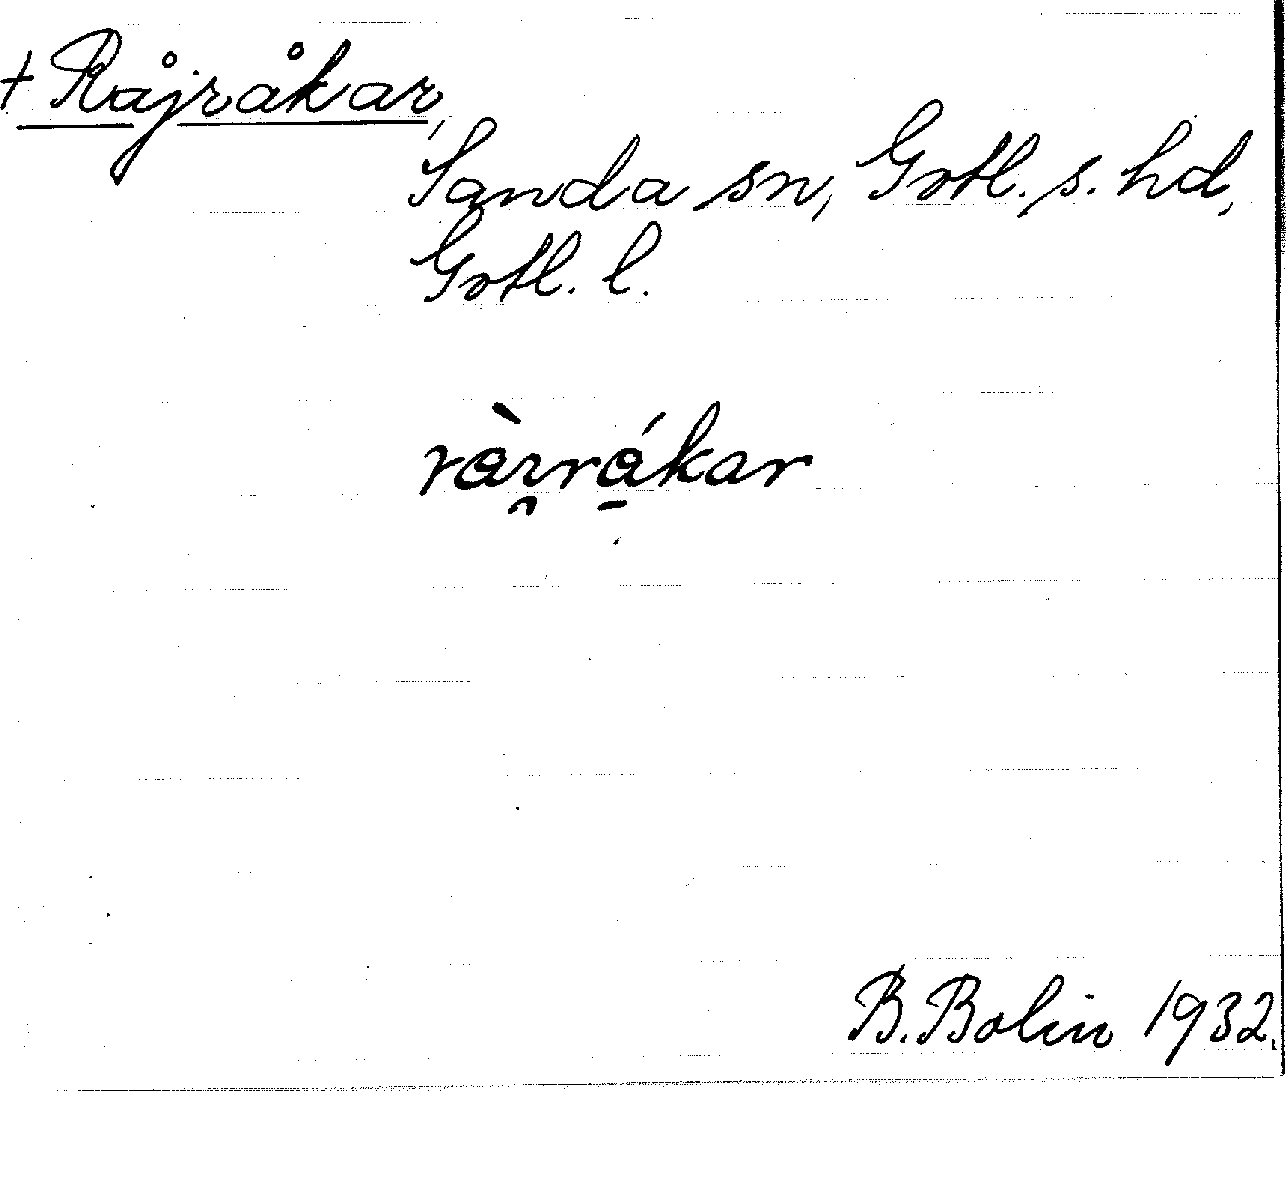 + Råjråkar,
Sanda sn, Gotl. s. hd,
Gotl. l.
ràꝛ̯rá̠kar
B. Bolin 1932.